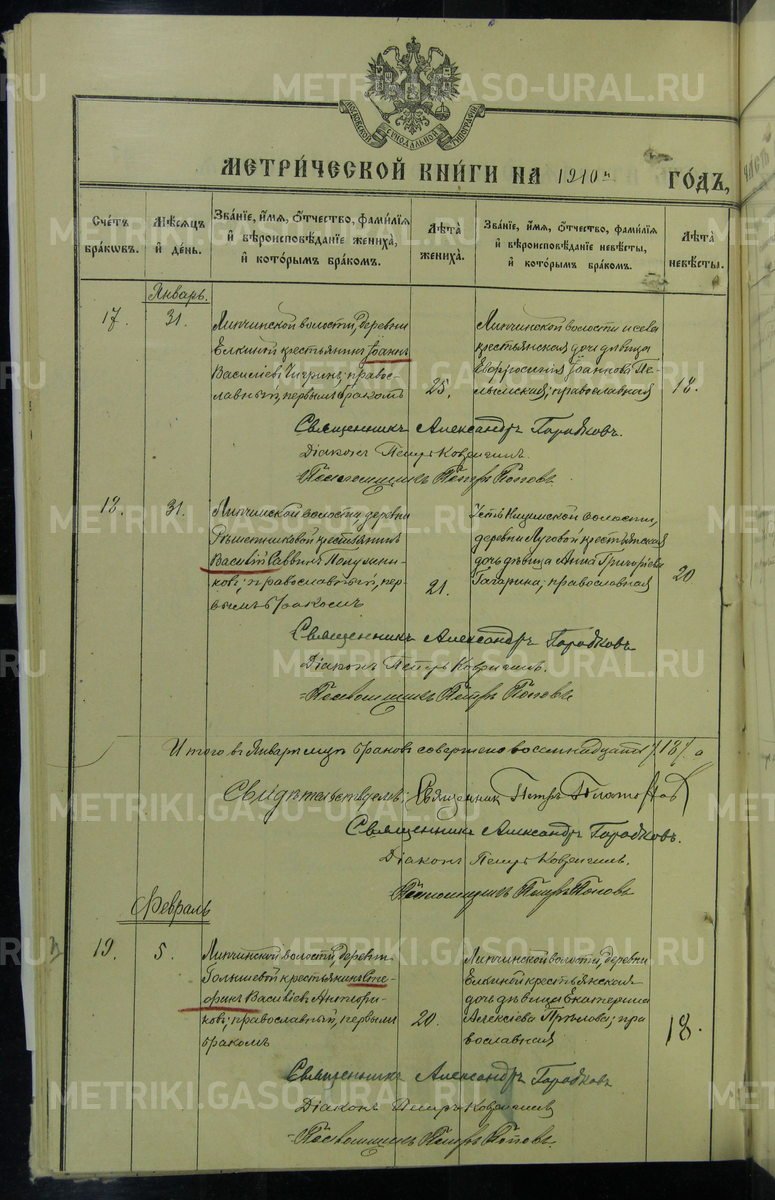 METRIKI.GASO-URAL.RU
МОСКОВСКОЙ СѴНОДАЛЬНОЙ ТИПОГРАФІИ
МЕТРИ́ЧЕСКОЙ КНИ́ГИ НА 1910й ГО́ДЪ,
Счетъ браковъ.
Мѣсяцъ и день.
Званіе, имя, отчество, фамилія и вѣроисповѣданіе жениха, и которымъ бракомъ.
Лѣта жениха.
Званіе, имя, отчество, фамилія и вѣроисповѣданіе невѣсты, и которымъ бракомъ.
Лѣта невѣсты.
Январь.
17. 31.
Липчинской волости, деревни
Елкиной крестьянинъ Іоаннъ
Василіевъ; правос-
лавный, первымъ бракомъ
25.
Липчинской волости и села
крестьянская дочь дѣвица
Евфросинія Іоаннова Пе-
лымская; православная
18.
Священникъ Александръ Городковъ.
Діаконъ Петръ
Псаломщикъ Петръ Поповъ
18. 31.
Липчинской волости, деревни
Рѣшетниковой крестьянинъ
Василій Саввинъ
православный, пер-
вымъ бракомъ
21.
волости,
деревни Луговой крестьянская
дочь дѣвица Анна Григоріева
Гагарина; православная
20
Священникъ Александръ Городковъ
Діаконъ Петръ
Псаломщикъ Петръ Поповъ
Итого въ Январѣ мцѣ браковъ совершено восемнадцать /18/.
Свидѣтельствуемъ: Священникъ Петръ
Священникъ Александръ Городковъ.
Діаконъ Петръ
Псаломщикъ Петръ Поповъ
Февраль
19. 5.
Липчинской волости, деревни
крестьянинъ Сте-
фанъ Василіевъ
православный, первымъ
бракомъ
20.
Липчинской волости, деревни
Елкиной крестьянская
дочь дѣвица Екатерина
Алексіева пра
вославная
18.
Священникъ Александръ Городковъ
Діаконъ Петръ
Псаломщикъ Петръ Поповъ